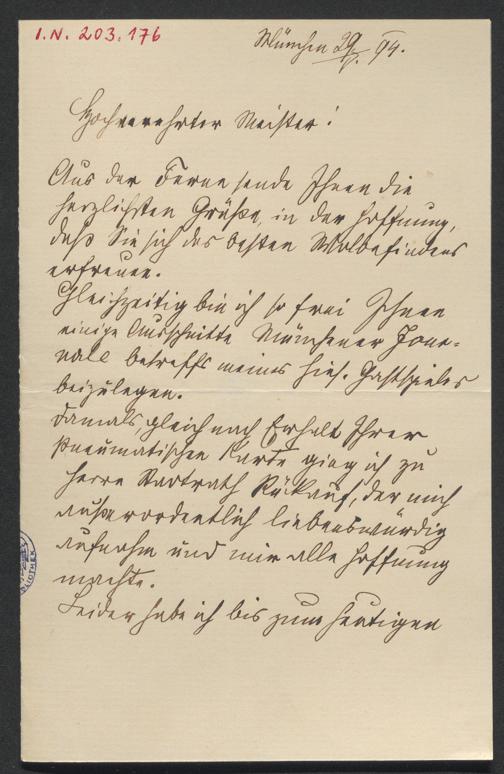 I.N. 203.176
München 29/. 94.
Hochverehrter Meister!
Aus der Ferne sende Ihnen die
herzlichsten Grüße, in der Hoffnung,
daß Sie sich des besten Wolbefindens
erfreuen.
Gleichzeitig bin ich so frei Ihnen
einige Ausschnitte Münchener Jour-
nale betreffs meines hies. Gastspieles
beizulegen.
Damals, gleich nach Erhalt Ihrer
Pneumatischen Karte ging ich zu
Herrn Stadtrath Rückauf, der mich
außerordentlich liebenswürdig
aufnahm und mir alle Hoffnung
machte.
Leider habe ich bis zum heutigen